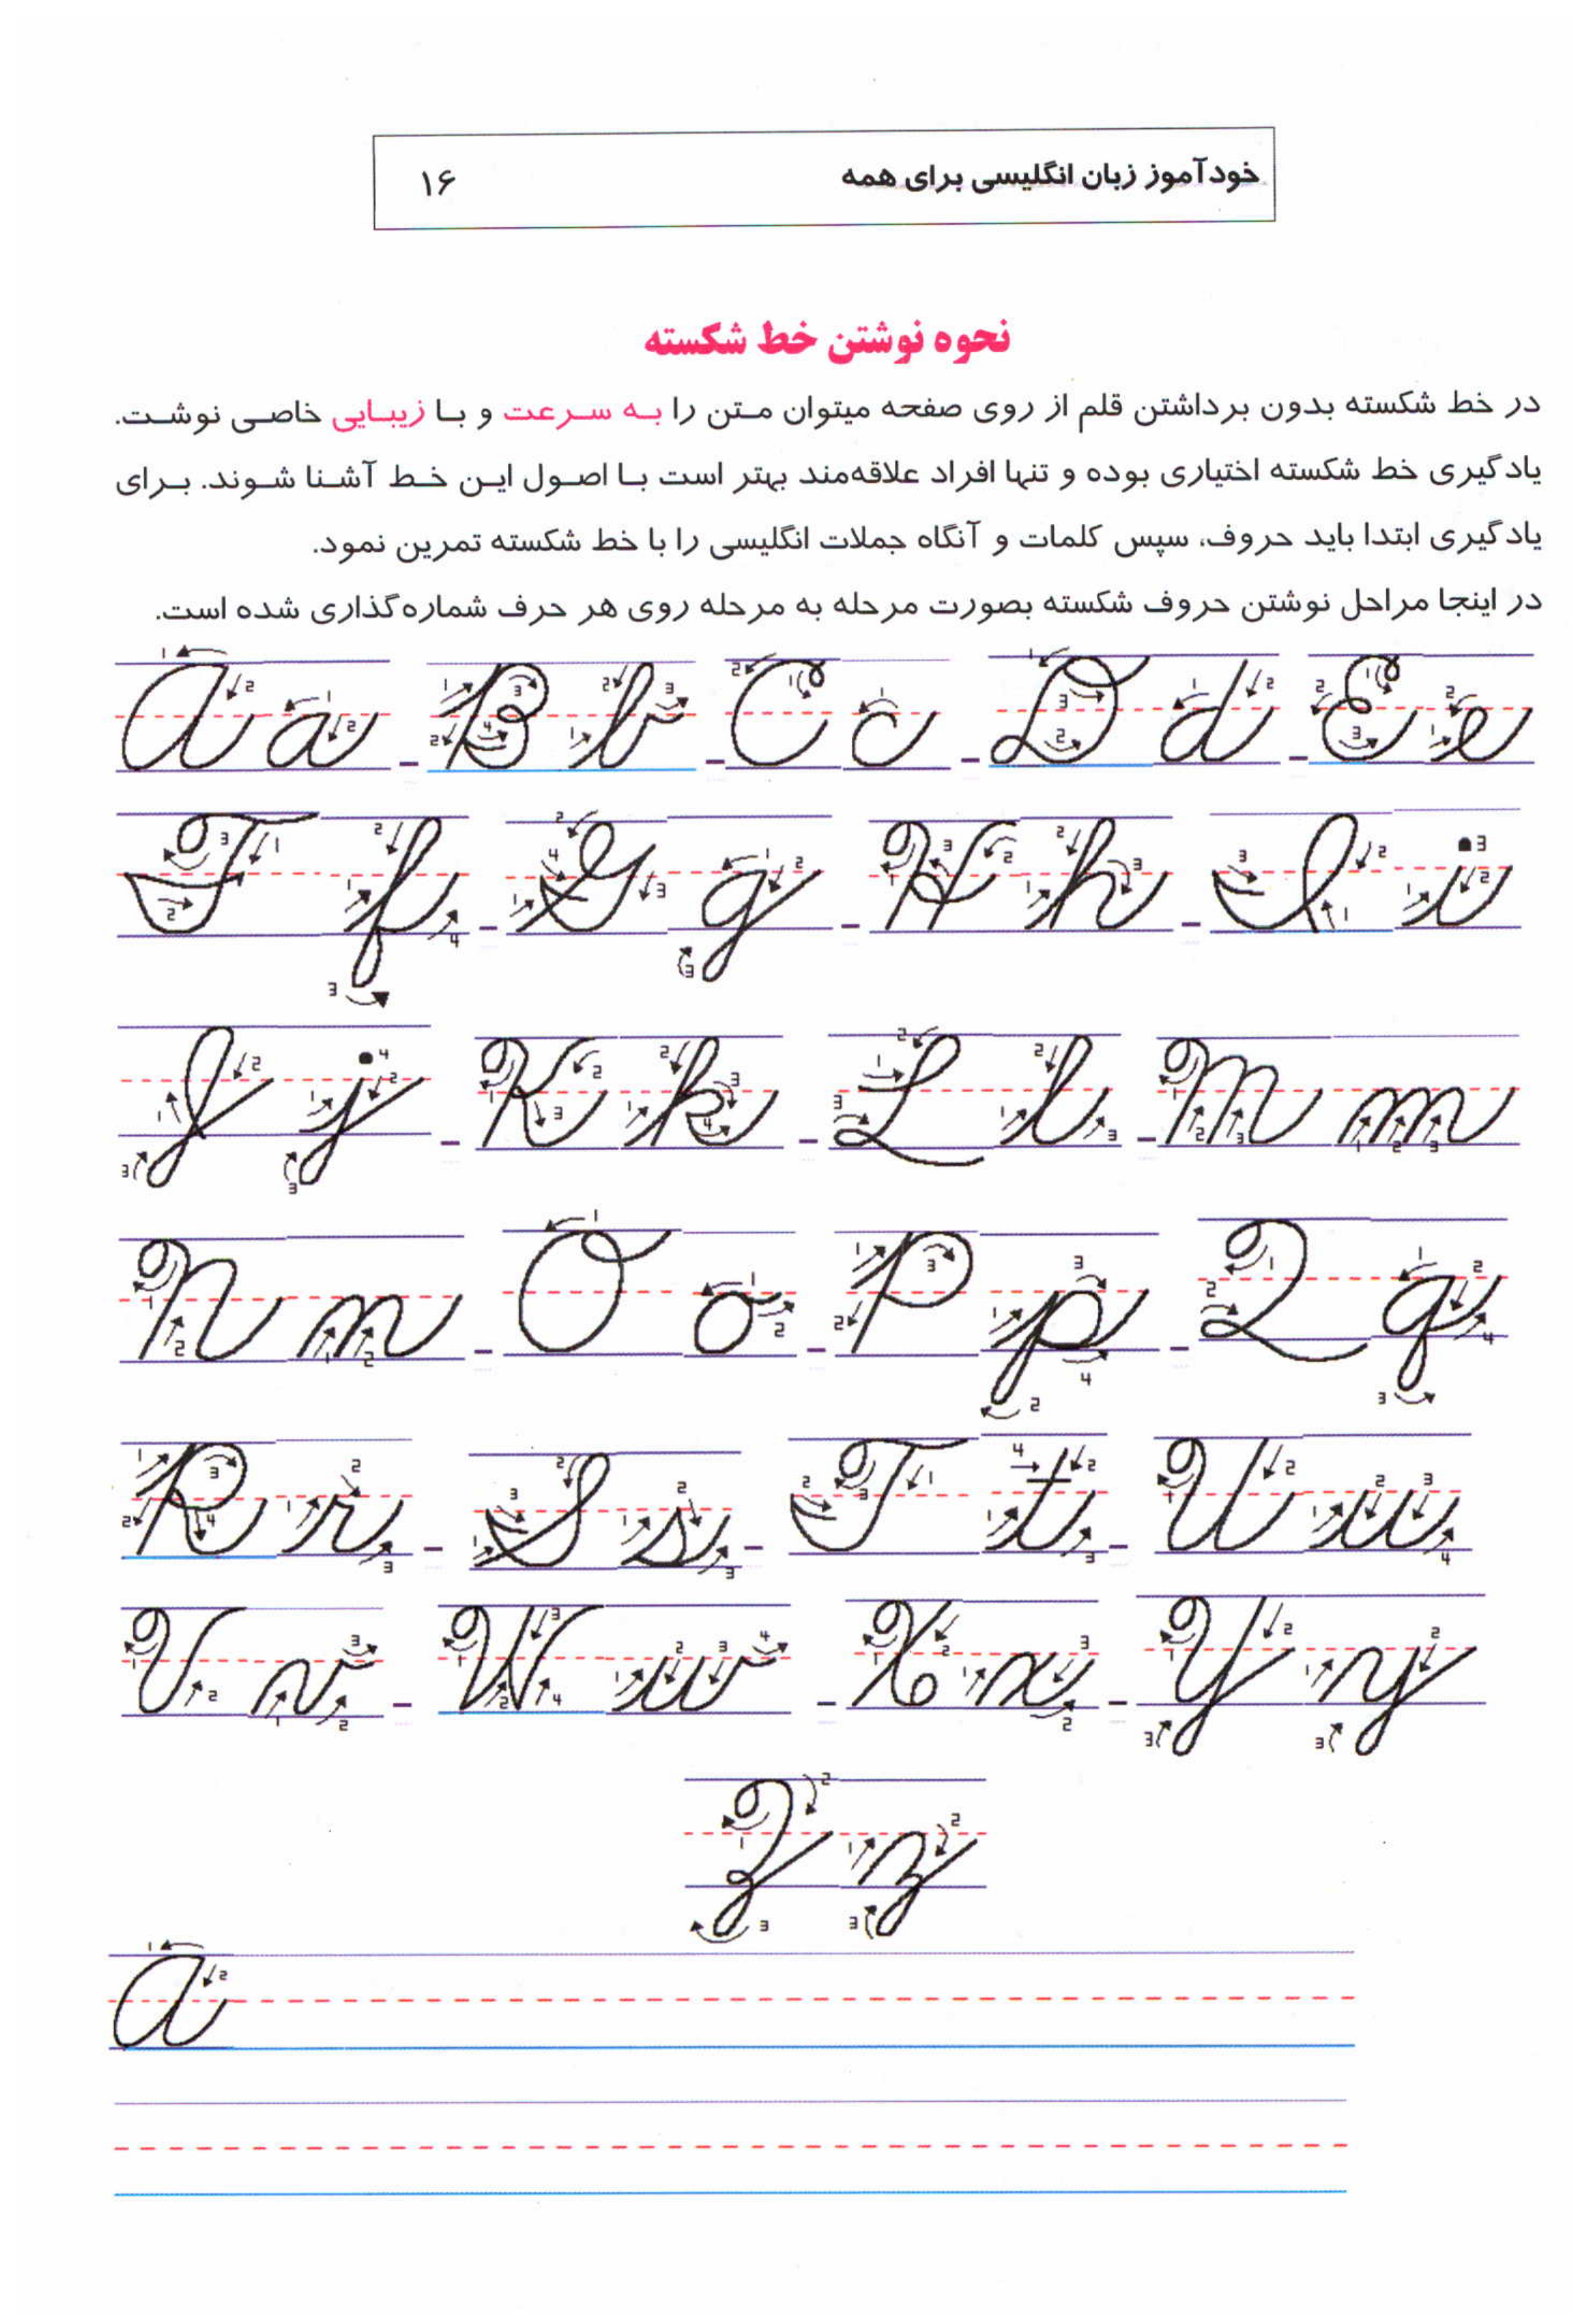 خودآموز زبان انگلیسی برای همه ۱۶
نحوه نوشتن خط شکسته
در خط شکسته بدون برداشتن قلم از روی صفحه میتوان متن را به سرعت و با زیبایی خاصی نوشت.
یادگیری خط شکسته اختیاری بوده و تنها افراد علاقه‌مند بهتر است با اصول این خط آشنا شوند. برای
یادگیری ابتدا باید حروف، سپس کلمات و آنگاه جملات انگلیسی را با خط شکسته تمرین نمود.
در اینجا مراحل نوشتن حروف شکسته بصورت مرحله به مرحله روی هر حرف شماره‌گذاری شده است.
A a - B b - C c - D d - E e
F f - G g - H h - I i
J j - K k - L l - M m
N n - O o - P p - Q q
R r - S s - T t - U u
V v - W w - X x - Y y
Z z
A